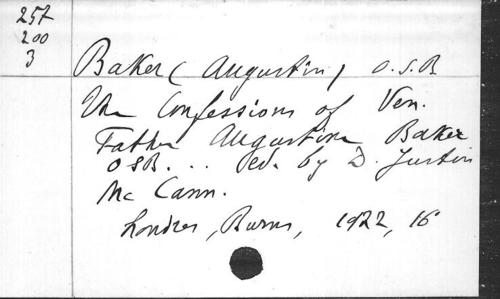 257
200
3
Baker (Augustin) O.S.B
The Confessions of Ven.
Father Augustine Baker
OSB... ed. by D. Justin
Mc Cann.
Londres, Burns, 1922, 16